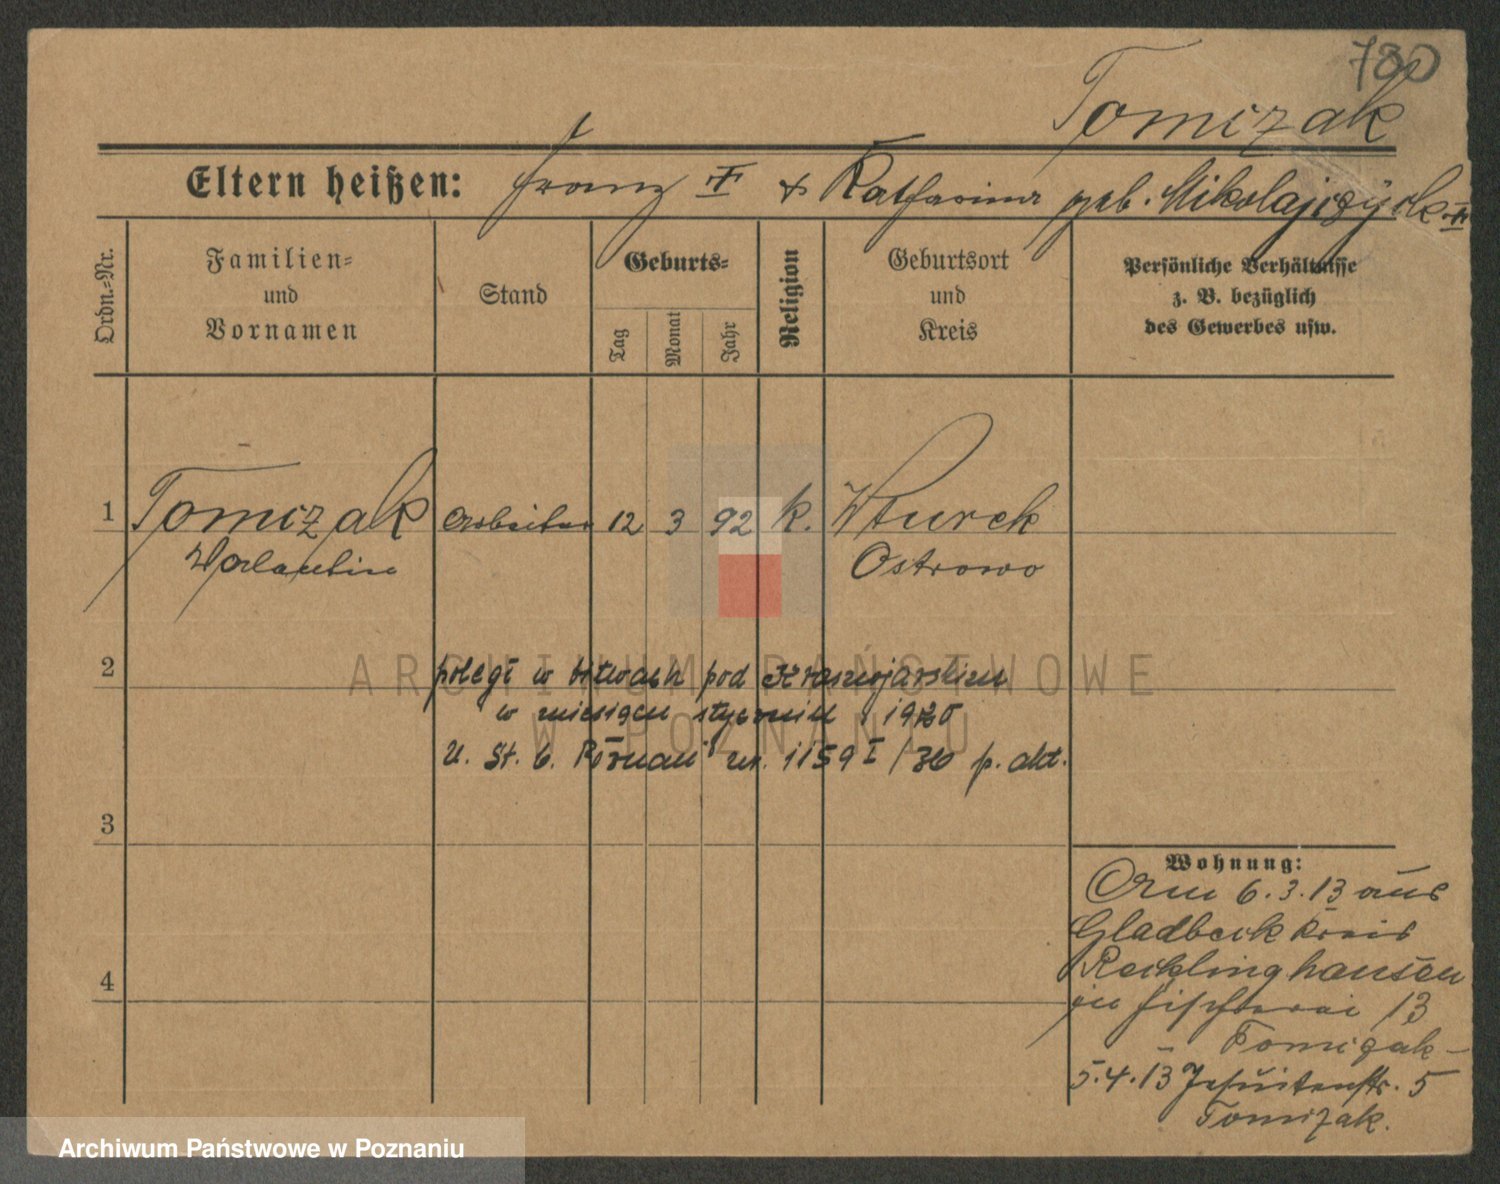 780
Tomizak
Eltern heißen: Franz † & Katharina geb. Mikolajczyck †
Ordn.-Nr.
Familien-
und
Vornamen
Stand
Geburts-
Tag
Monat
Jahr
Religion
Geburtsort
und
Kreis
Persönliche Verhältnisse
z. B. bezüglich
des Gewerbes usw.
1 Tomizak Arbeiter 12 3 92 k. Wturek
Valentin Ostrowo
2
poległ w bitwach pod Krasnojarskiem
w miesiącu styczniu 1920
U. St. C. Poznań nr. 1159 I / p. akt.
3
4
Wohnung:
Am 6.3.13 aus
Gladbeck Kreis
Recklinghausen
in Fischerei 13
Tomizak
5.4.13 Jesuitenstr. 5
Tomizak.
ARCHIWUM PAŃSTWOWE
W POZNANIU
Archiwum Państwowe w Poznaniu